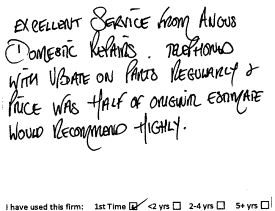 EXCELLENT SERVICE FROM ANGUS
DOMESTIC REPAIRS. TELEPHONED
WITH UPDATE ON PARTS REGULARLY &
PRICE WAS HALF OF ORIGINAL ESTIMATE
WOULD RECOMMEND HIGHLY.
I have used this firm: 1st Time ☑ <2 yrs ☐ 2-4 yrs ☐ 5+ yrs ☐